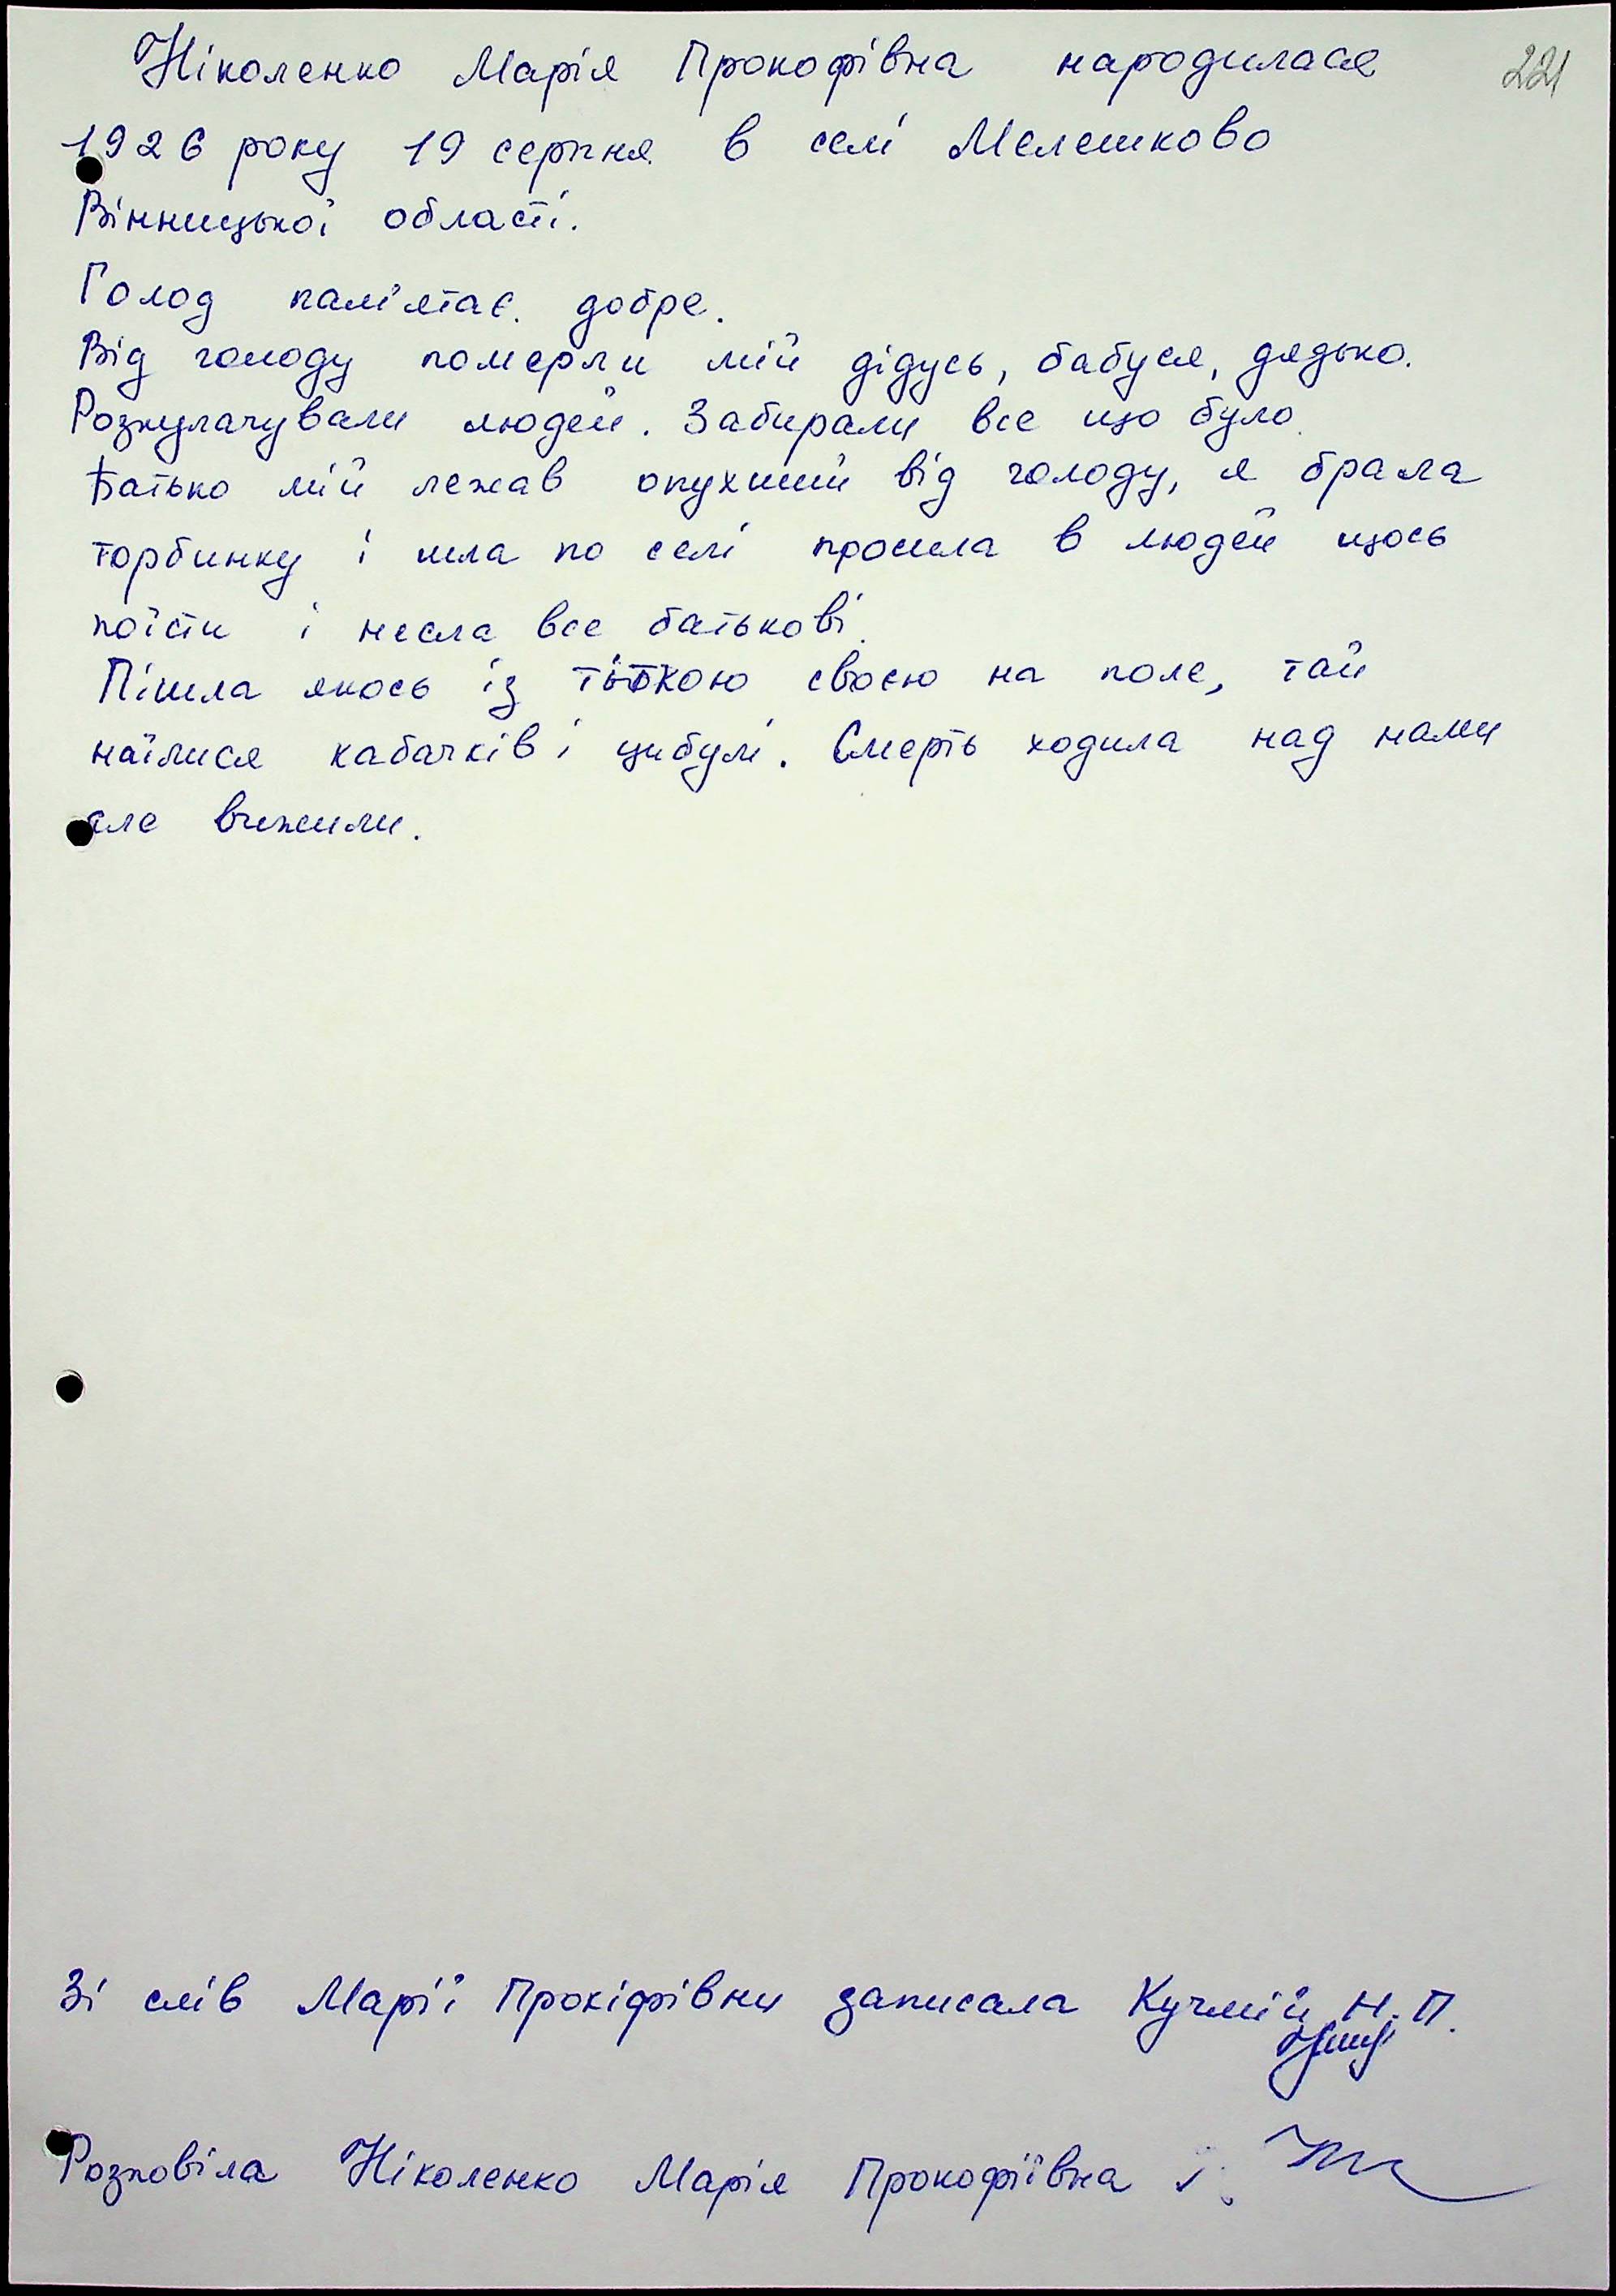 Ніколенко Марія Прокофівна народилася 221
1926 року 19 серпня в селі Мелешково
Вінницької області.
Голод пам'ятає добре.
Від голоду померли мій дідусь, бабуся, дядько.
Розкулачували людей. Забирали все що було.
Батько мій лежав опухший від голоду, я брала
торбинку і шла по селі просила в людей щось
поїсти і несла все батькові.
Пішла якось із тіткою своєю на поле, тай
наїлися кабачків і цибулі. Смерть ходила над нами
але вижили.
Зі слів Марії Прокіфівни записала Кучмій Н.П.
Розповіла Ніколенко Марія Прокофіївна